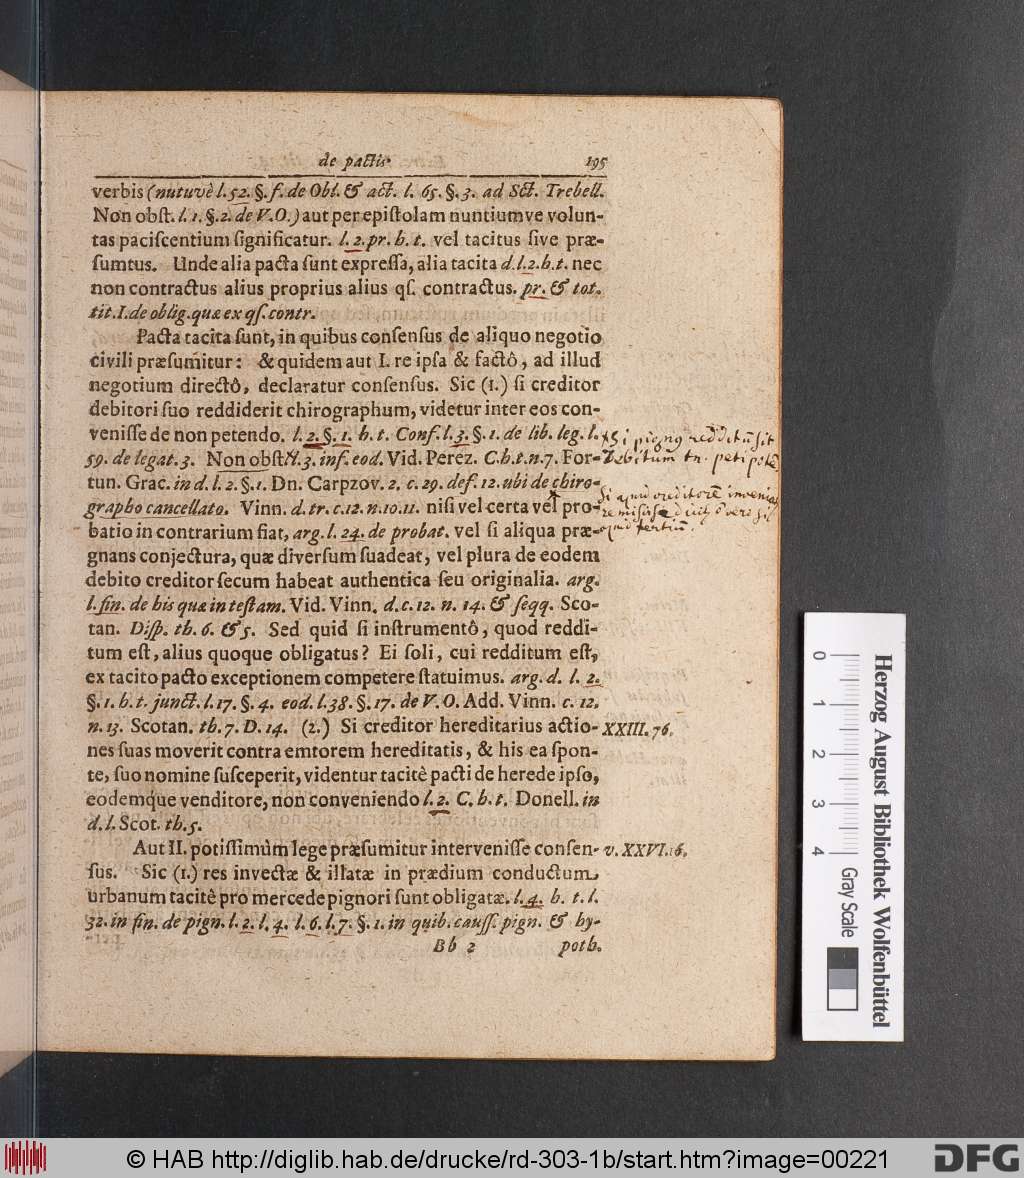 de pactis
195
verbis (nutuvè l. 52. §. f. de Obl. & act. l. 65. §. 3. ad Sct. Trebell.
Non obst. l. 1. §. 2. de V. O.) aut per epistolam nuntiumve volun-
tas paciscentium significatur. l. 2. pr. h. t. vel tacitus sive præ-
sumtus. Unde alia pacta sunt expressa, alia tacita d. l. 2. h. t. nec
non contractus alius proprius alius qs. contractus. pr. & tot.
tit. I. de oblig. quæ ex qs. contr.
Pacta tacita sunt, in quibus consensus de aliquo negotio
civili præsumitur: & quidem aut I. re ipsa & factô, ad illud
negotium directô, declaratur consensus. Sic (1.) si creditor
debitori suo reddiderit chirographum, videtur inter eos con-
venisse de non petendo. l. 2. §. 1. h. t. Conf. l. 3. §. 1. de lib. leg. l.
59. de legat. 3. Non obst. l. 3. inf. eod. Vid. Perez. C. h. t. n. 7. For-
tun. Grac. in d. l. 2. §. 1. Dn. Carpzov. 2. c. 29. def. 12. ubi de chiro-
grapho cancellato. Vinn. d. tr. c. 12. n. 10. 11. nisi vel certa vel pro-
batio in contrarium fiat, arg. l. 24. de probat. vel si aliqua præ-
gnans conjectura, quæ diversum suadeat, vel plura de eodem
debito creditor secum habeat authentica seu originalia. arg.
l. fin. de his quæ in testam. Vid. Vinn. d. c. 12. n. 14. & seqq. Sco-
tan. Disp. th. 6. & 5. Sed quid si instrumentô, quod reddi-
tum est, alius quoque obligatus? Ei soli, cui redditum est,
ex tacito pacto exceptionem competere statuimus. arg. d. l. 2.
§. 1. h. t. junct. l. 17. §. 4. eod. l. 38. §. 17. de V. O. Add. Vinn. c. 12.
n. 13. Scotan. th. 7. D. 14. (2.) Si creditor hereditarius actio-
nes suas moverit contra emtorem hereditatis, & his ea spon-
te, suo nomine susceperit, videntur tacitè pacti de herede ipso,
eodemque venditore, non conveniendo l. 2. C. h. t. Donell. in
d. l. Scot. th. 5.
Aut II. potissimùm lege præsumitur intervenisse consen-
sus. Sic (1.) res invectæ & illatæ in prædium conductum
urbanum tacitè pro mercede pignori sunt obligatæ. l. 4. h. t. l.
32. in fin. de pign. l. 2. l. 4. l. 6. l. 7. §. 1. in quib. causs. pign. & hy-
Bb 2
poth.
Si pignus redditū sit
debitum tn. peti
Si apud creditorē
XXIII. 76.
v. XXVI. 16.
0
1
2
3
4
Gray Scale
Herzog August Bibliothek Wolfenbüttel
© HAB http://diglib.hab.de/drucke/rd-303-1b/start.htm?image=00221
DFG